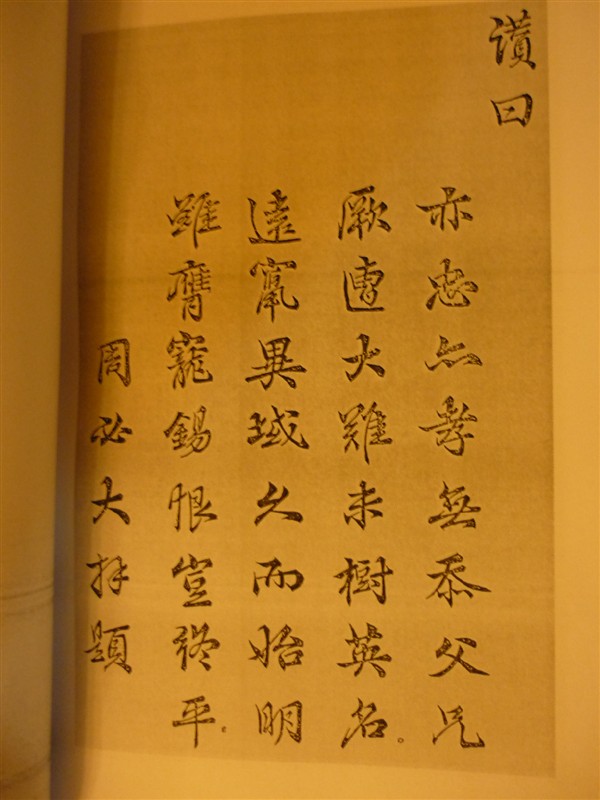 讃曰
亦忠亦孝無忝父兄
厥遭大難未樹英名。
遠竄異域久而始明
雖膺寵錫恨豈終平。
周必大拜題